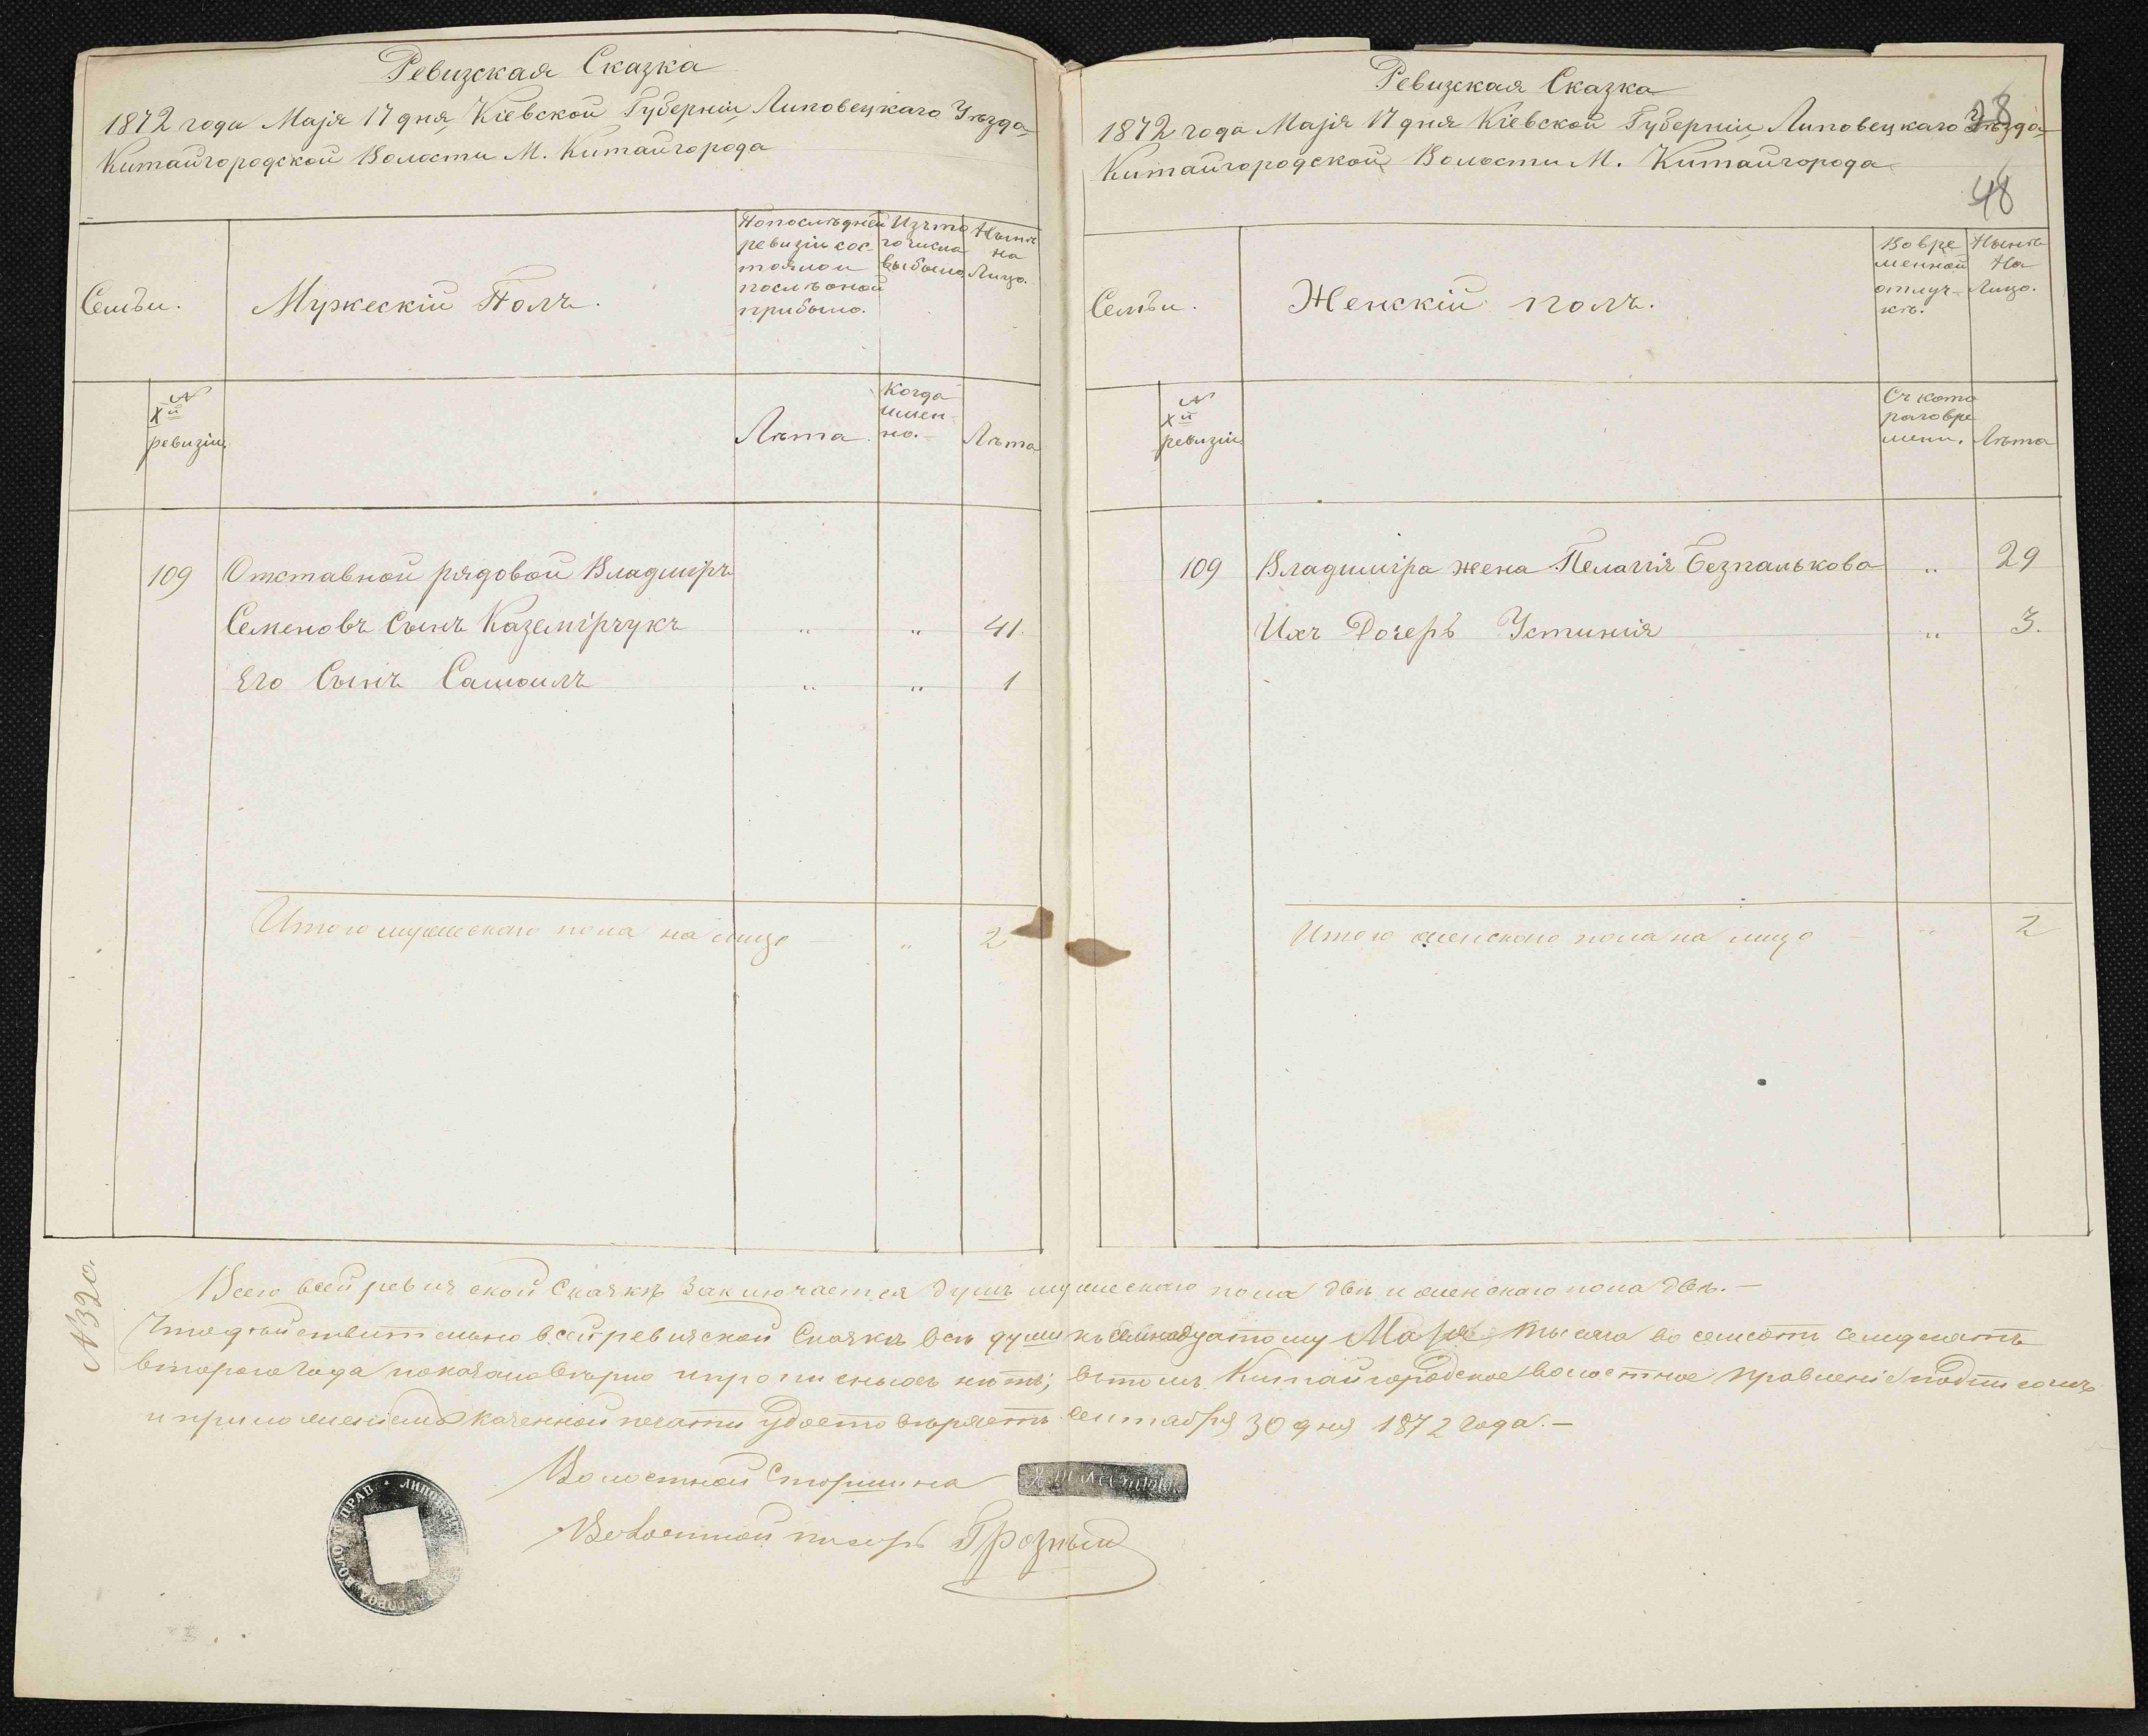 Ревизская Сказка
1872 года Маія 17 дня Кіевской Губерніи Липовецкаго Уѣзда
Китайгородской Волости М. Китайгорода
Семьи.
Мужескій Полъ.
По послѣдней ревизіи состояло и послѣ оной прибыло.
Изъ того числа выбыло.
Нынѣ на Лицо.
№ Xй ревизіи
Лѣта
Когда именно.
Лѣта
109 Отставной рядовой Владиміръ
Семеновъ Сынъ Каземірчукъ " " 41.
Его Сынъ Самоилъ " " 1
Итого мужескаго пола на лицо " 2
Ревизская Сказка
28
1872 года Маія 17 дня Кіевской Губерніи Липовецкаго Уѣзда
Китайгородской Волости М. Китайгорода
48
Семьи.
Женскій полъ.
Во временной отлучкѣ.
Нынѣ На Лицо.
№ Xй ревизіи
Съ котораго времени.
Лѣта
109 Владиміра жена Пелагія Безпалькова " 29
Ихъ Дочерь Устинія " 3.
Итого женскаго пола на лицо " 2
№ 320.
Всего в сей ревизской Сказкѣ Заключается душъ мужескаго пола двѣ и женскаго пола двѣ.—
Что дѣйствительно в сей ревизской Сказкѣ всѣ души къ семнадцатому Маія тысяча восемсотъ семдесятъ
второго года показано вѣрно и прописныхъ нѣтъ; втомъ Китайгородское Волостное Правленіе подписомъ
и приложеніемъ казенной печати удостовѣряетъ Сентября 30 дня 1872 года.—
Волостной Старшина
Волостной писарь Грозный